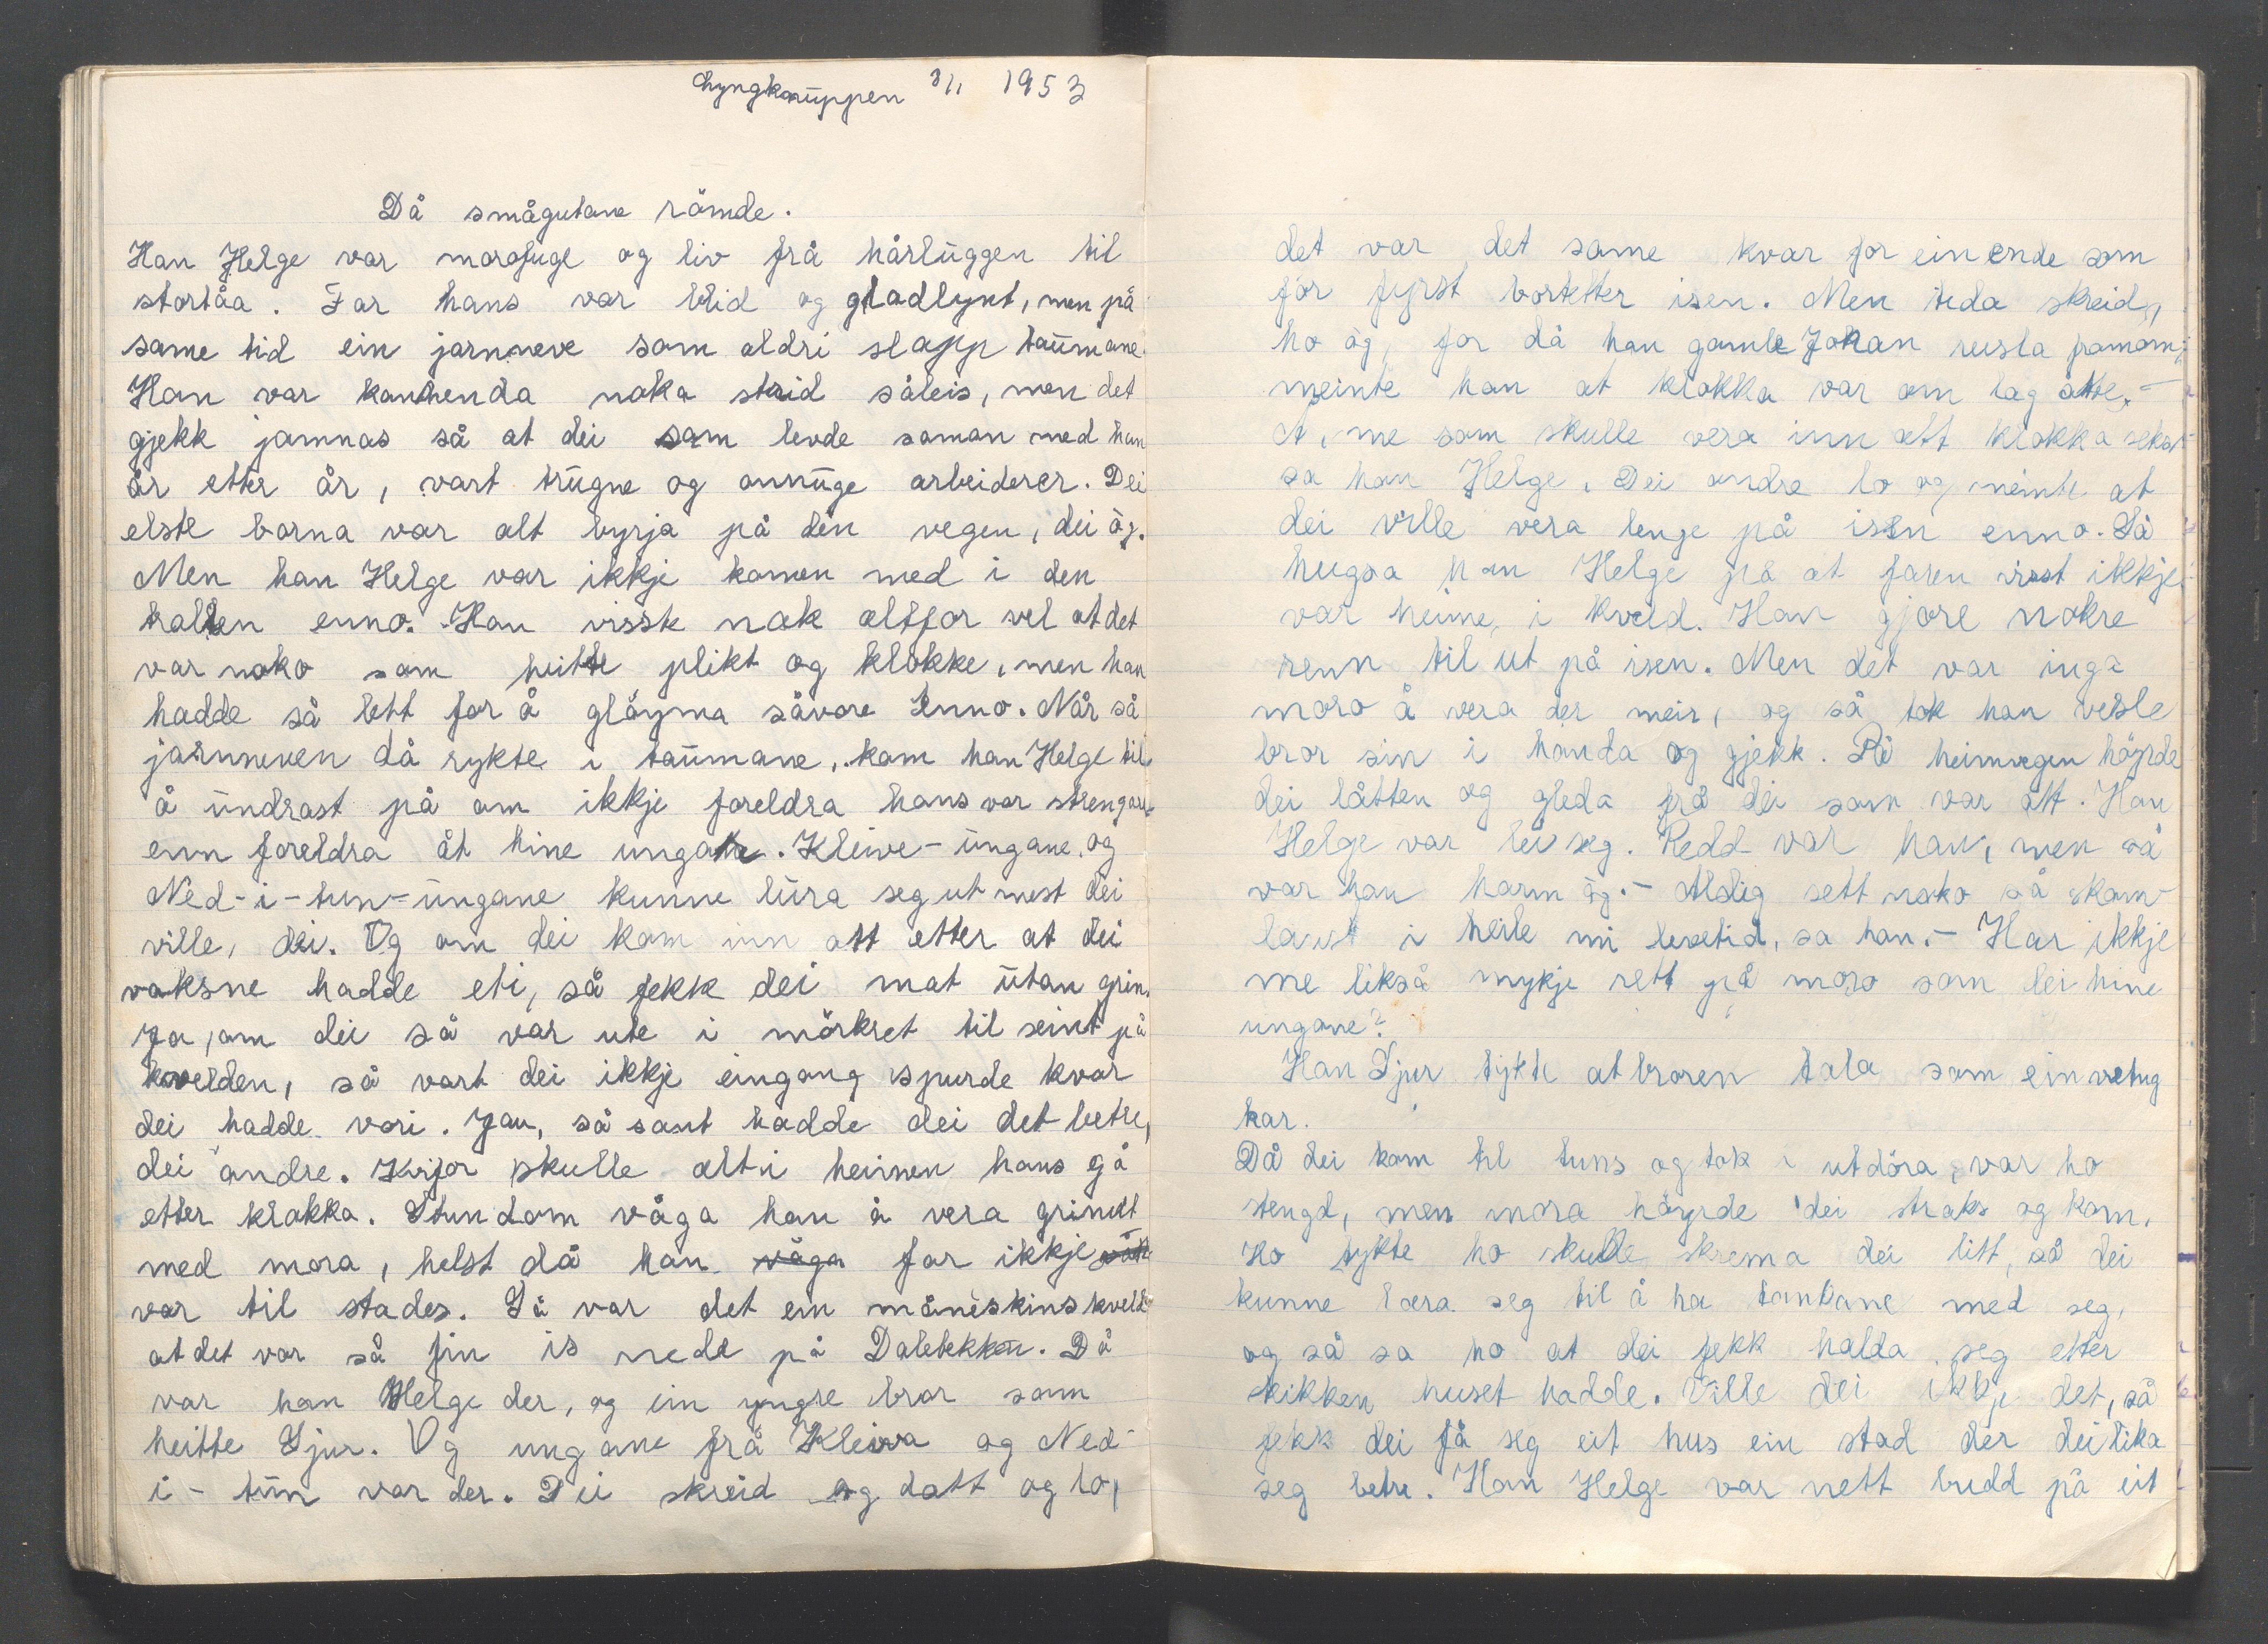 Lyngknuppen 3/1 1953
Då smågutane römde.
Han Helge var morofuge og liv frå hårluggen til
stortåa. Far hans var blid og gladlynt, men på
same tid ein jarnneve som aldri slapp taumane.
Han var kanhenda noka strid såleis, men det
gjekk jamnas så at dei som levde saman med han
år etter år, vart trugne og annuge arbeiderer. Dei
elste borna var alt byrja på den vegen, dei òg.
Men han Helge var ikkje komen med i den
trallen enno. Han visste nok altfor vel at det
var noko som heitte plikt og klokke, men han
hadde så lett for å glöyma såvore enno. Når så
jarnneven då rykte i taumane, kom han Helge til
å undrast på om ikkje foreldra hans var strengare
enn foreldra åt hine ungane. Kleive-ungane og
Ned-i-tun-ungane kunne lura seg ut mest dei
ville, dei. Og om dei kom inn att etter at dei
vaksne hadde eti, så fekk dei mat utan grin.
Ja, om dei så var ute i mörkret til seint på
kvelden, så vart dei ikkje eingang spurde kvar
dei hadde vori. Jau, så sant hadde dei det betre,
dei andre. Kvifor skulle alt i heimen hans gå
etter klokka. Stundom våga han å vera grinut
med mora, helst då han våga far ikkje
var til stades. Så var det ein måneskinskveld
at det var så fin is nede på Dalebekken. Då
var han Helge der, og ein yngre bror som
heitte Sjur. Og ungane frå Kleiva og Ned-
i-tun var der. Dei skreid og datt og lo,
det var det same kvar for ein ende som
för fyrst bortetter isen. Men tida skreid,
ho òg, for då han gamle Johan rusla framom,
meinte han at klokka var om lag åtte.-
Å, me som skulle vera inn att klokka seks-
sa han Helge. Dei andre lo og meinte at
dei ville vera lenge på isen enno. Så
hugsa han Helge på at faren visst ikkje
var heime i kveld. Han gjore nokre
renn til ut på isen. Men det var inga
moro å vera der meir, og så tok han vesle
bror sin i handa og gjekk. På heimvegen höyrde
dei låtten og gleda frå dei som var att. Han
Helge var lei seg. Redd var han, men så
var han harm òg.- Aldig sett noko så skam-
laust i heile mi levetid, sa han.- Har ikkje
me likså mykje rett på moro som dei hine
ungane?
Han Sjur tykte at broren tala som ein vetug
kar.
Då dei kom til tuns og tok i utdöra, var ho
stengd, men mora höyrde dei straks og kom.
Ho tykte ho skulle skrema dei litt, så dei
kunne læra seg til å ha tankane med seg,
og så sa ho at dei fekk halda seg etter
skikken huset hadde. Ville dei ikkje det, så
fekk dei få seg eit hus ein stad der dei lika
seg betre. Han Helge var nett budd på eit